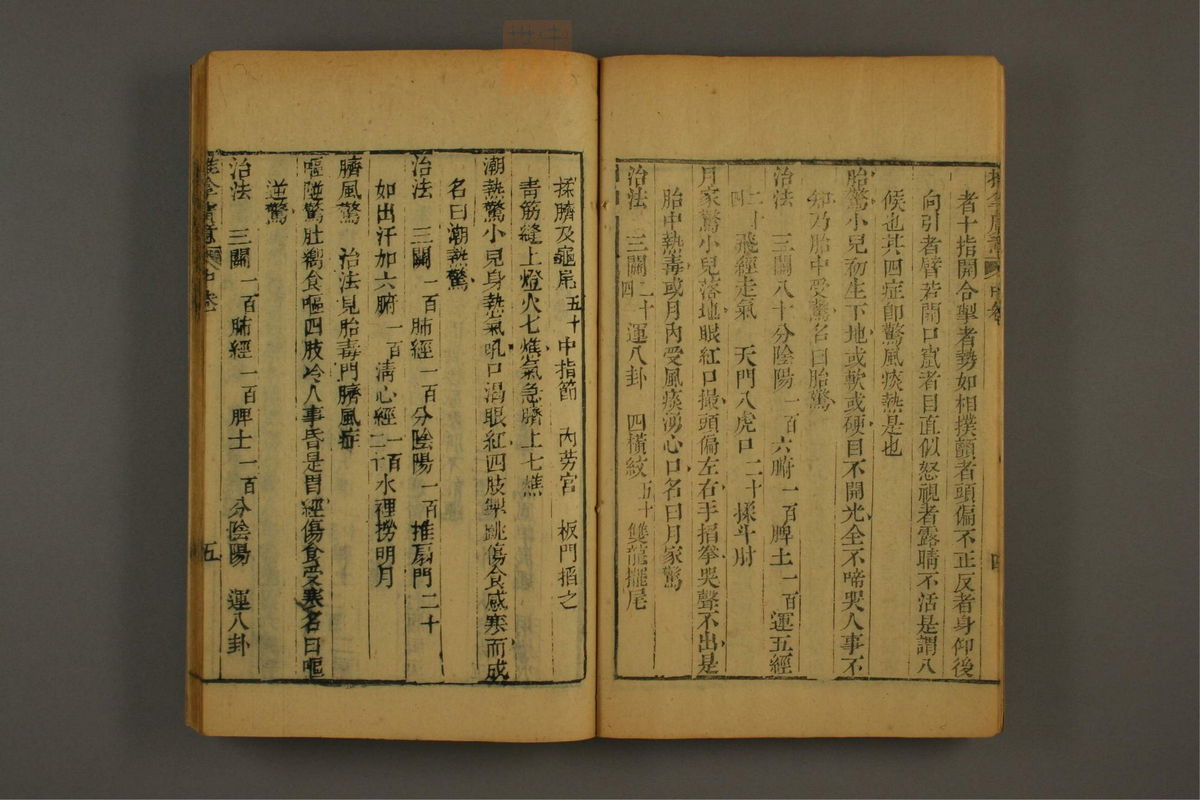 者十指開合掣者勢如相撲顫者頭偏不正反者身仰後
向引者臂若開口竄者目直似怒視者露睛不活是謂八
候也其四症卽驚風痰熱是也
胎驚小兒初生下地或軟或硬目不開光全不啼哭人事不
知乃胎中受驚名曰胎驚
治法 三關八十分陰陽一百六腑一百脾土一百運五經
二十飛經走氣 天門入虎口二十揉斗肘
月家驚小兒落地眼紅口撮頭偏左右手掐拳哭聲不出是
胎中熱毒或月內受風痰湧心口名曰月家驚
治法 三關 二十四運八卦 四橫紋五十雙龍擺尾
四
揉臍及龜尾五十中指節 內勞宮 板門掐之
靑筋縫上燈火七燋氣急臍上七燋
潮熱驚小兒身熱氣吼口渴眼紅四肢掣跳傷食感寒而成
名曰潮熱驚
治法 三關 一百肺經一百分陰陽一百推扇門二十
如出汗加六腑一百淸心經二百水裡撈明月
臍風驚 治法見胎毒門臍風症
嘔逆驚肚嚮食嘔四肢冷人事昏是胃經傷食受寒名曰嘔
逆驚
治法 三關一百肺經一百脾土一百分陰陽 運八卦
中卷 五